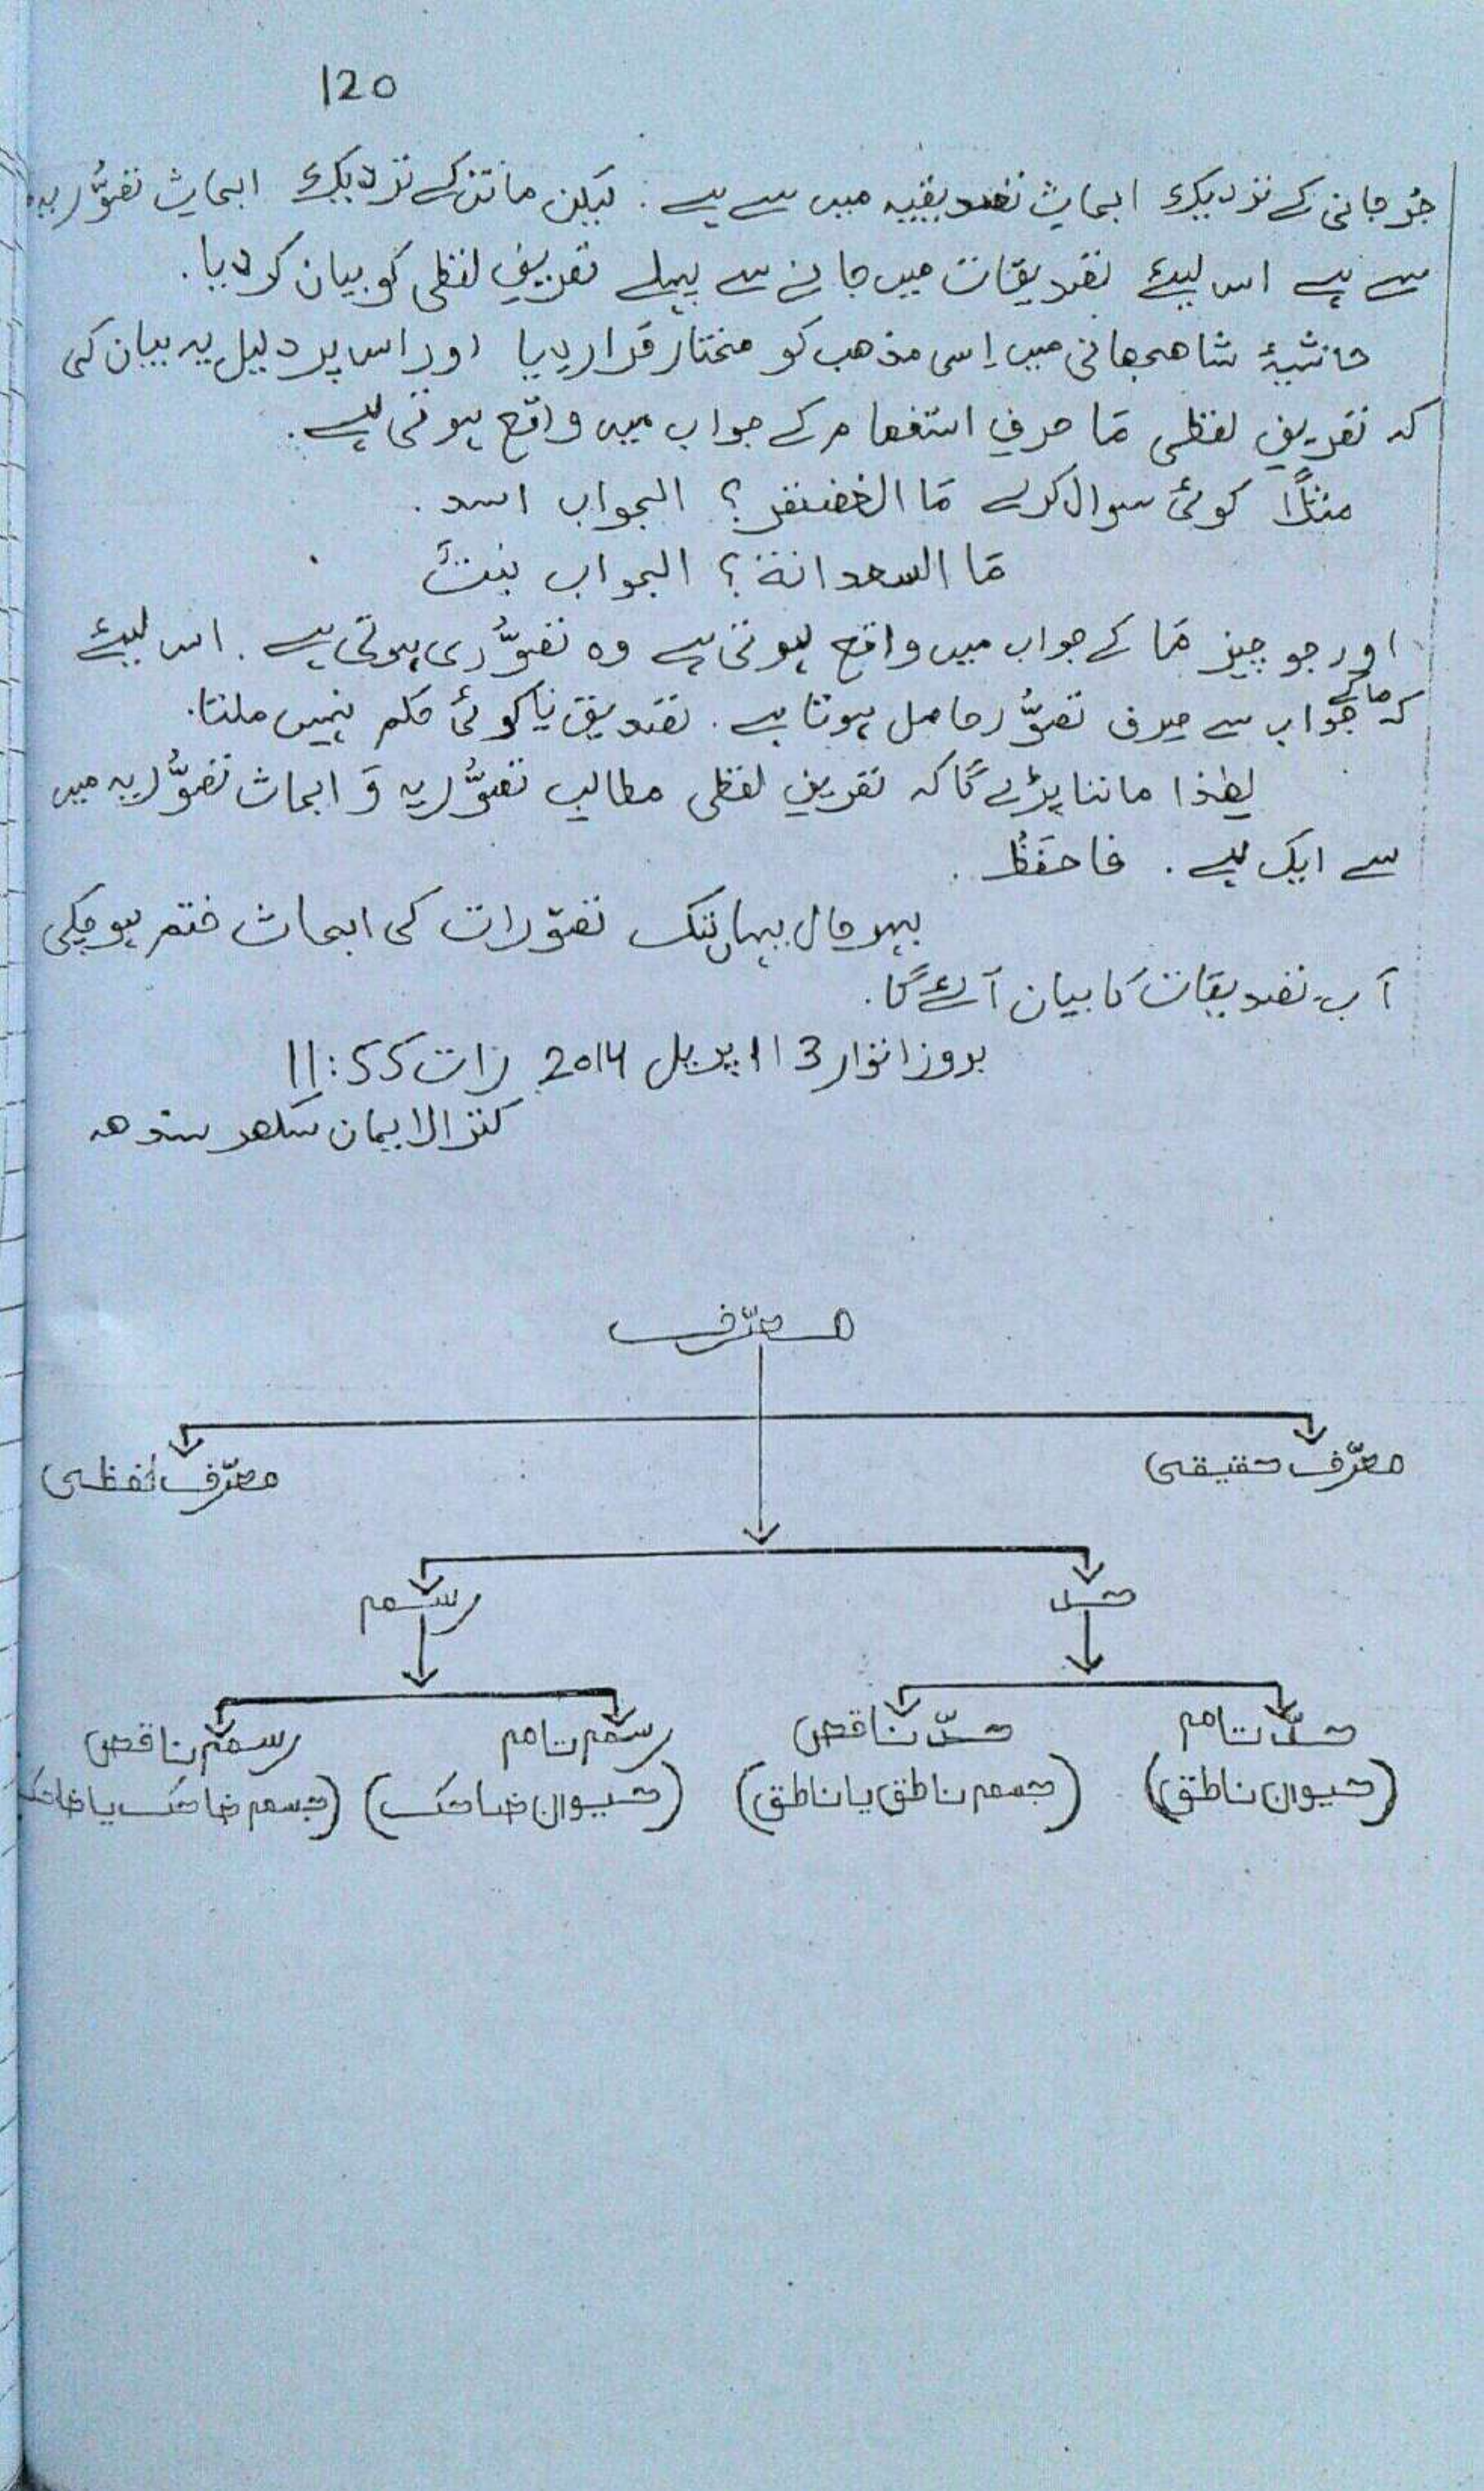 120
جُرجانی کے نزدیک ابحاثِ تصدیقیہ میں سے ہے. لیکن ماتن کے نزدیک ابحاثِ تصوُّریہ
سے ہے اس لیئے تصدیقات میں جانے سے پہلے تعریفِ لفظی کو بیان کردیا.
حاشیۂ شاھجھانی میں اِسی مذھب کو مختار قرار دیا اور اس پر دلیل یہ بیان کی
کہ تعریفِ لفظی مَا حرفِ استفھام کے جواب میں واقع ہوتی ہے.
مثلاً کوئی سوال کرے مَا الغضنفر؟ الجواب اسد.
مَا السعدانة؟ الجواب نبتٌ
اور جو چیز مَا کے جواب میں واقع ہوتی ہے وہ تصوُّری ہوتی ہے. اس لیئے
کہ ما کے جواب سے صرف تصوُّر حاصل ہوتا ہے. تصدیق یا کوئی حکم نہیں ملتا.
لھٰذا ماننا پڑے گا کہ تعریفِ لفظی مطالبِ تصوُّریہ وَ ابحاث تصوُّریہ میں
سے ایک ہے. فاحفَظْ.
بہرحال یہاں تک تصوّرات کی ابحاث ختم ہوچکی
آب تصدیقات کا بیان آئے گا.
بروز اتوار 13 اپریل 2014 رات 11:55
کنزالایمان سکھر سندھ
معرّف
معرّف حقیقی
معرّف لفظی
حد
رسم
حدّ تام
حدّ ناقص
رسم تام
رسم ناقص
(حیوان ناطق)
(جسم ناطق یا ناطق)
(حیوان ضاحک)
(جسم ضاحک یا ضاحک